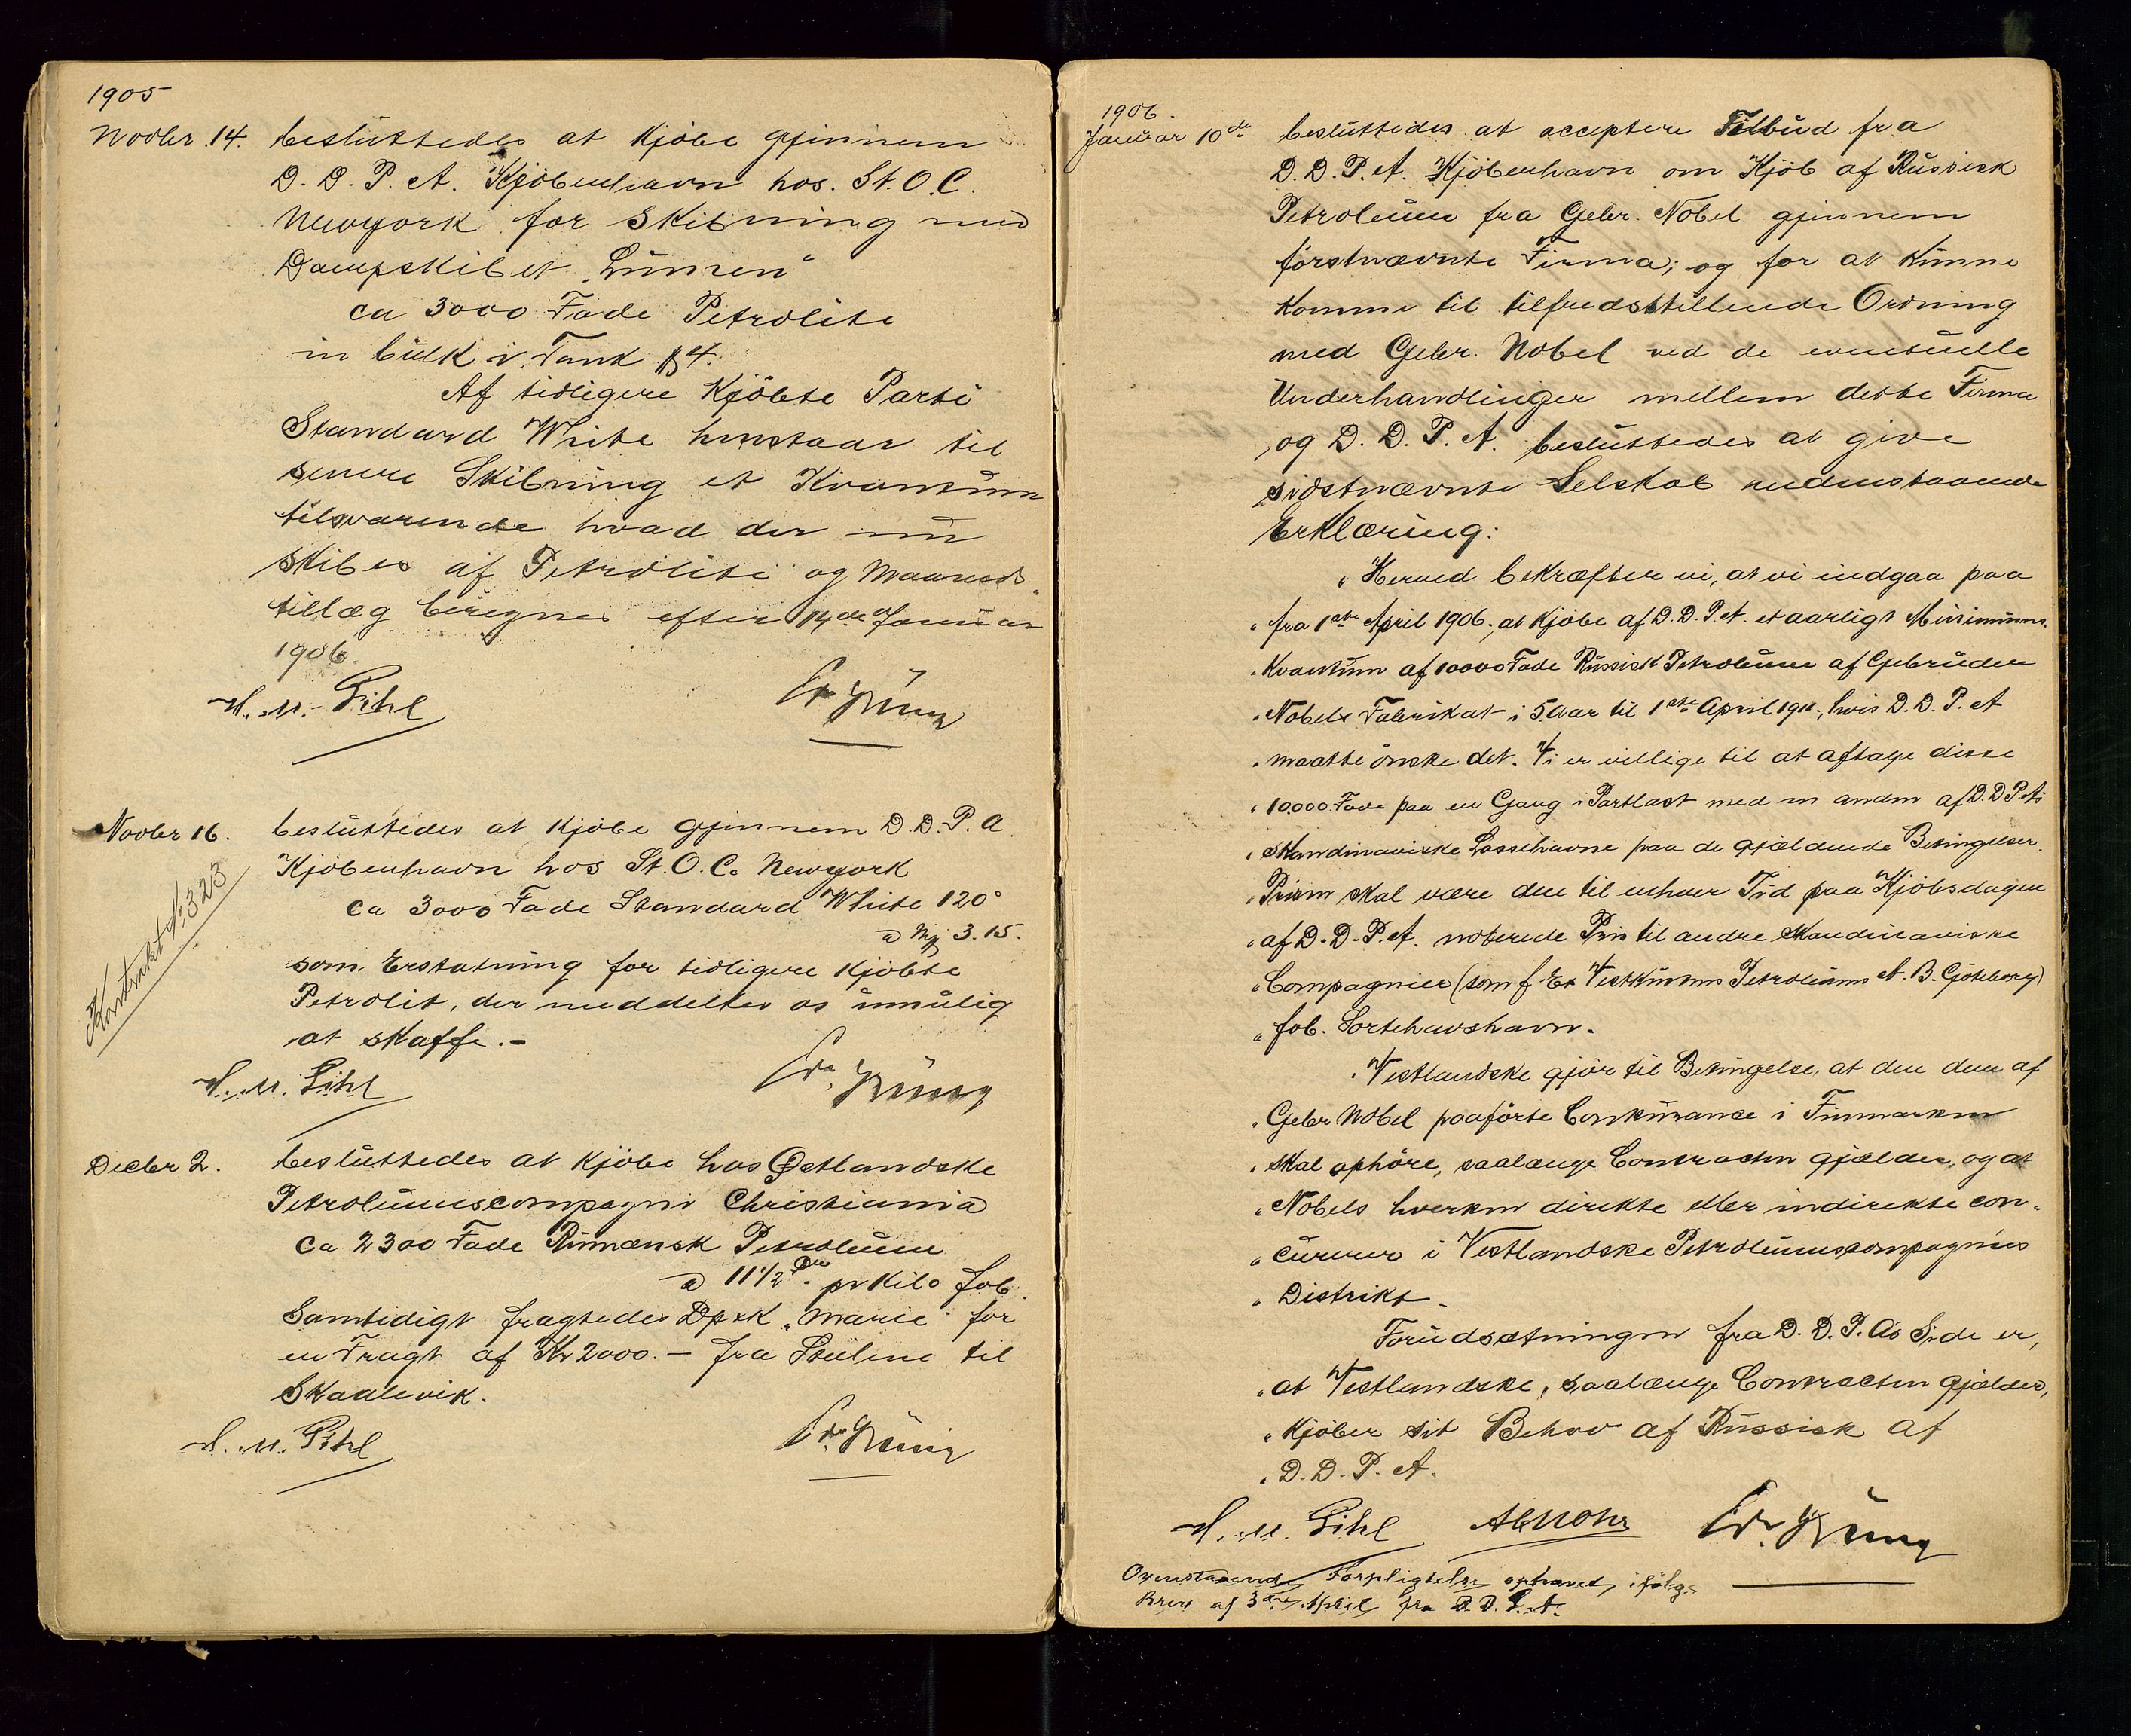 1905
Novbr. 14. besluttedes at kjöbe gjennem
D. D. P. A. Kjöbenhavn hos. St. O. C.
Newyork for Skibning med
Dampskibet „Lumen"
ca 3000 Fade Petrolite
in bulk i Tank № 4.
Af tidligere Kjöbte Parti
Standard White henstaar til
senere Skibning et Kvantum
tilsvarende hvad der nu
skibes af Petrolite og Maaneds
tillæg beregnes efter 14de Januar
1906.
H. M. Pihl
Novbr 16. besluttedes at Kjöbe gjennem D. D. P. A.
Kjöbenhavn hos St. O. C. Newyork
Kontrakt № 323
ca 3000 Fade Standard White 120°
a 3.15.
som Erstatning for tidligere Kjöbte
Petrolit, der meddeltes os umulig
at skaffe.-
H. M. Pihl
Decbr 2. besluttedes at kjöbe hos Østlandske
Petroleumscompagni Christiania
ca 2300 Fade Rumænsk Petroleum
a 11½ Øre pr Kilo fob.
Samtidigt fragtedes Dpsk „Marie" for
en Fragt af Kr 2000.- fra til
Skaalevik.
H. M. Pihl
1906.
Januar 10de besluttedes at acceptere Tilbud fra
D. D. P. A. Kjöbenhavn om Kjöb af Russisk
Petroleum fra Gebr. Nobel gjennem
förstnævnte Firma; og for at kunne
komme til tilfredsstillende Ordning
med Gebr. Nobel ved de eventuelle
Underhandlinger mellem dette Firma
og D. D. P. A. besluttedes at give
sidstnævnte Selskab nedenstaaende
Erklæring:
„Herved bekræfter vi, at vi indgaa paa
„fra 1ste April 1906. at kjöbe af D. D. P. A. et aarligt Minimums-
„Kvantum af 10000 Fade Russisk Petroleum af Gebrüder
„Nobels Fabrikat i 5 Aar til 1ste April 1911., hvis D. D. P. A
„maatte önske det. Vi er villige til at aftage disse
„10.000 Fade paa en Gang i Partlast med en anden af D. D. P. A's
„skandinaviske Lossehavne paa de gjældende Betingelser.
„Prisen skal være den til enhver Tid paa Kjöbsdagen
„af D. D. P. A. noterede Pris til andre skandinaviske
„Compagnier (som f. Ex Vestkustens Petroleums A. B. Gjöteborg)
„fob. Sortehavshavn.
„Vestlandske gjör til Betingelse, at den dem af
„Gebr Nobel paaförte Conkurrance i Finmarken
„skal ophöre, saalænge Contracten gjælder, og at
„Nobels hverken direkte eller indirekte con-
„curerer i Vestlandske Petroleumscompagnies
„Distrikt.
Forudsætningen fra D. D. P. As Side er,
„at Vestlandske, saalænge Contracten gjælder,
„kjöber sit Behov af Russisk af
„D. D. P. A.
H. M. Pihl
Ovenstaaende Forpligtelse ophævet ifölge
Brev af 3die April fra D. D. P. A.